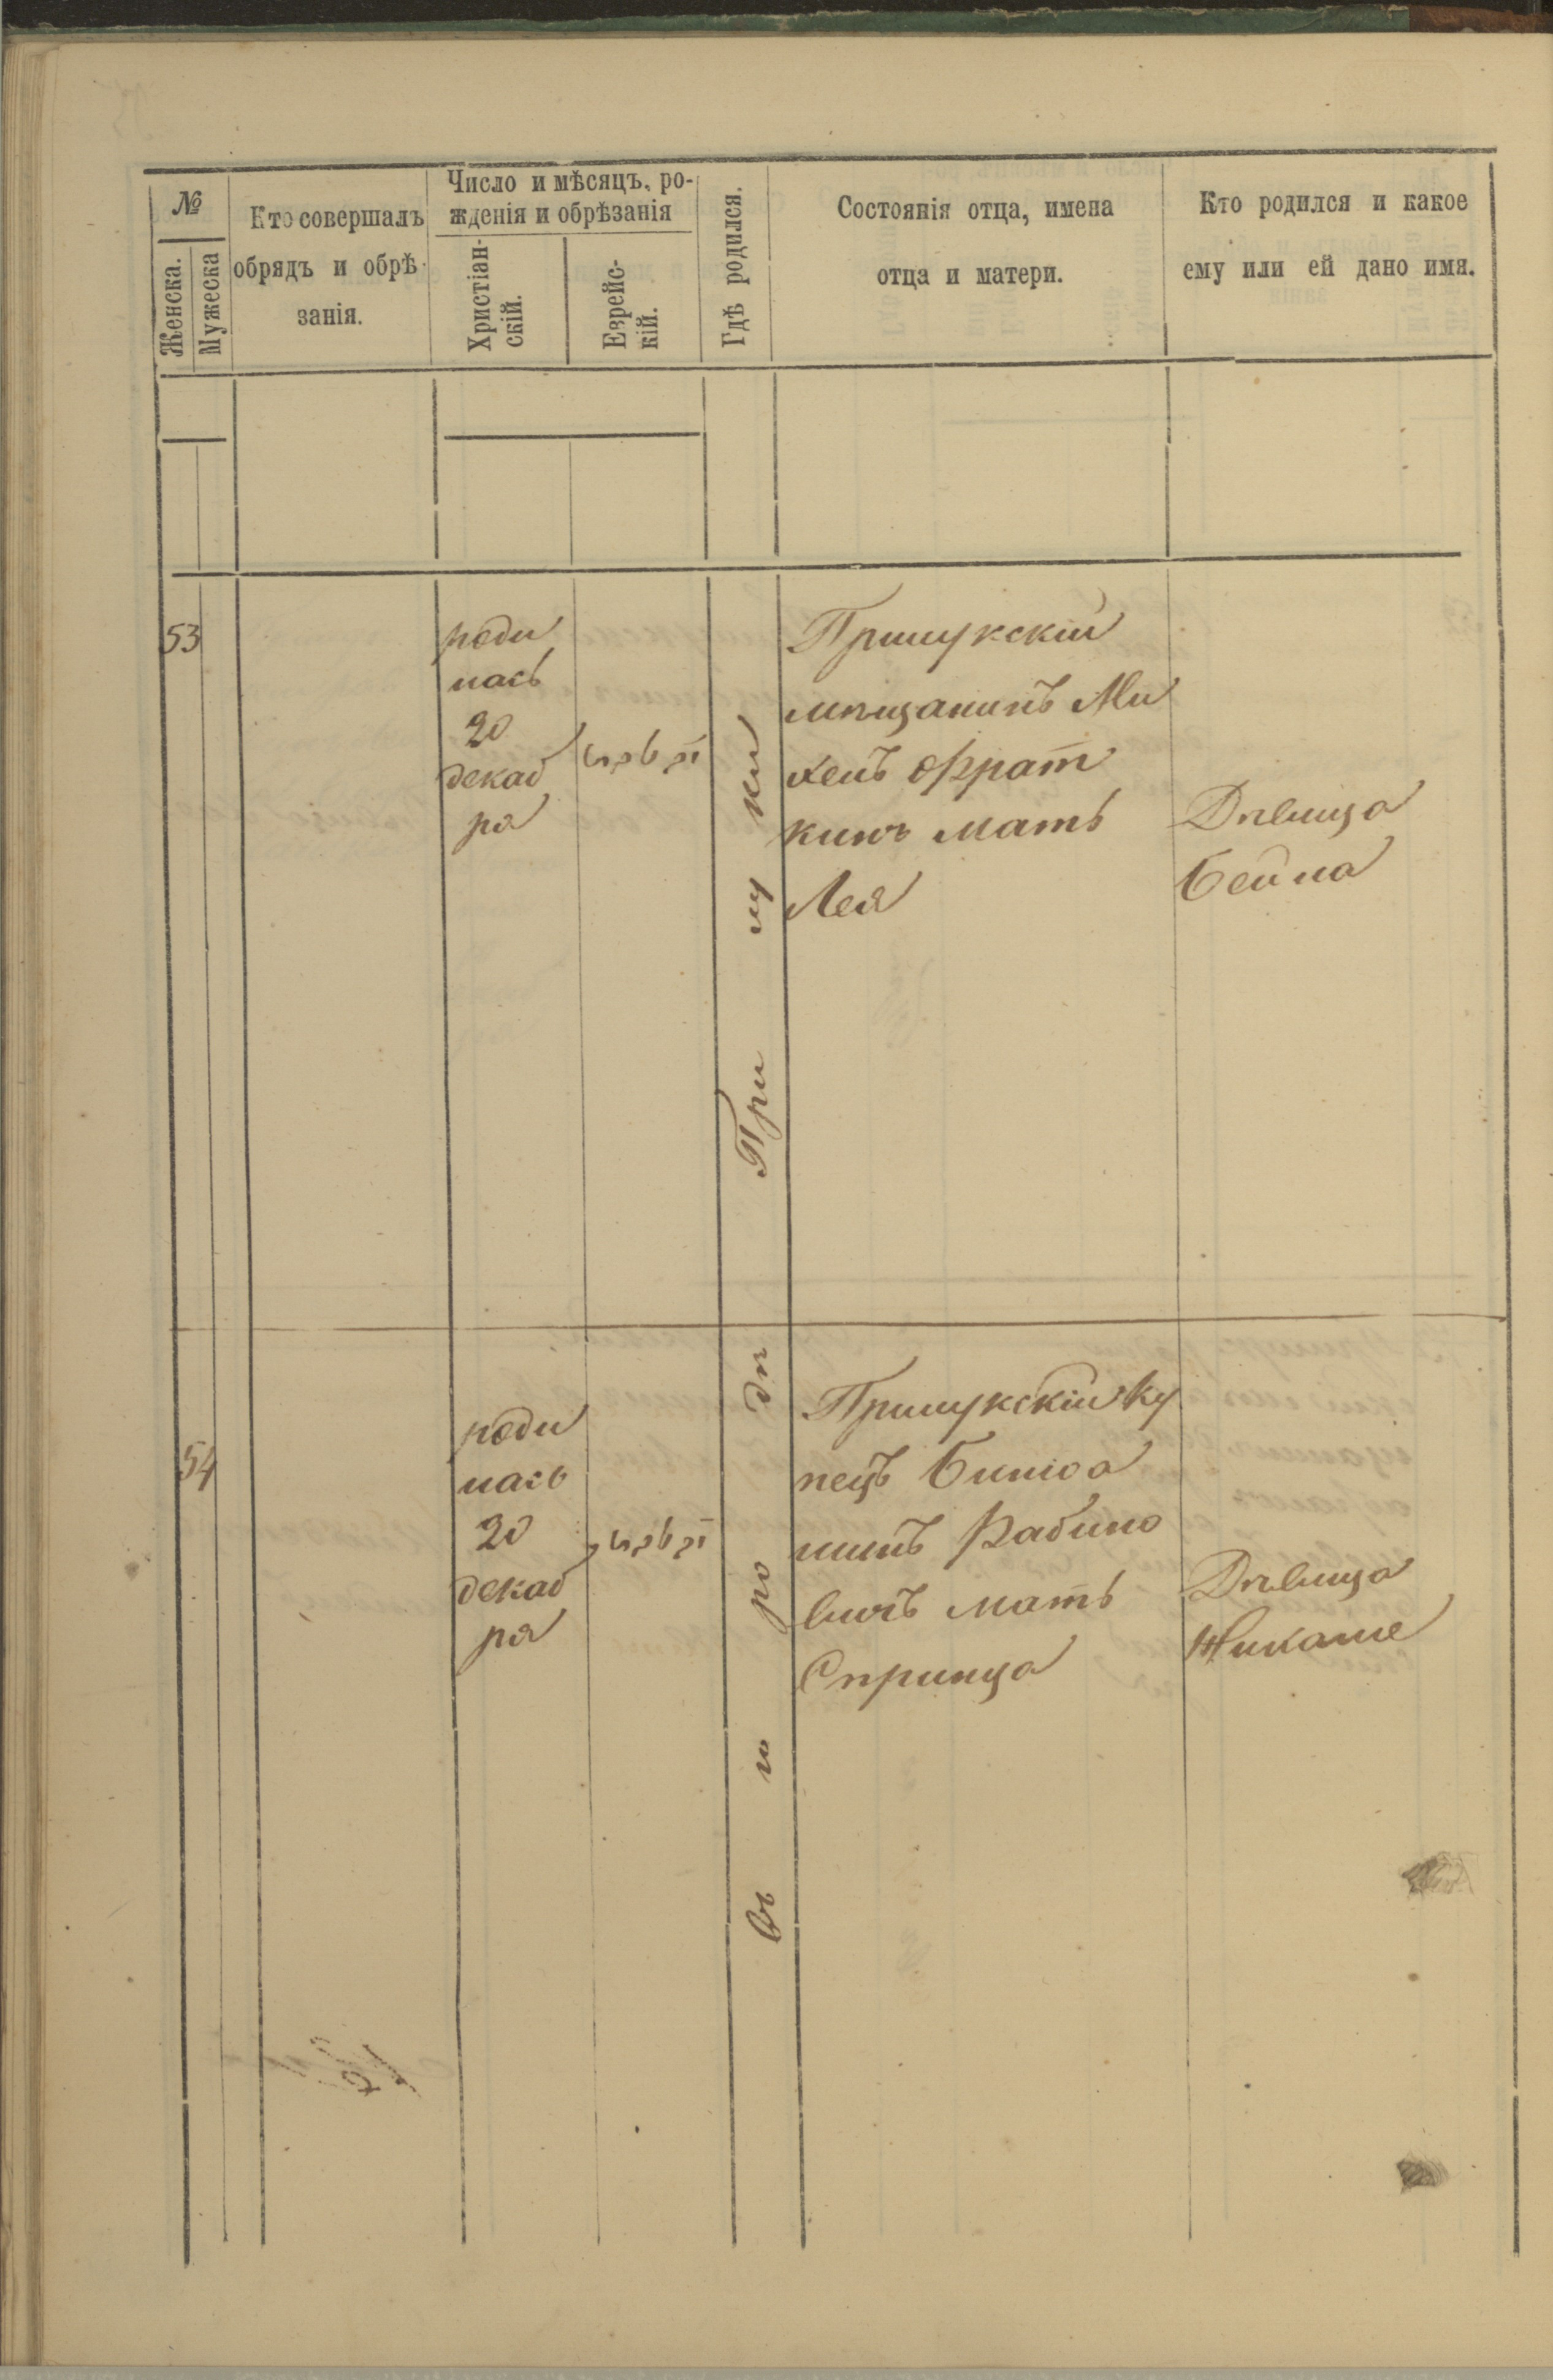 №
Женска.
Мужеска
Кто совершалъ
обрядъ и обрѣ-
занія.
Число и мѣсяцъ, ро-
жденія и обрѣзанія
Христіан-
скій.
Еврейс-
кій.
Гдѣ родился.
Состоянія отца, имена
отца и матери.
Кто родился и какое
ему или ей дано имя.
53
роди
лась
20
декаб
ря
Прилукскій
мѣщанинъ Ми
хель Фрат
кинъ мать
Лея
Дѣвица
Бейла
54
роди
лась
20
декаб
ря
Прилукскій ку
пецъ
Рабино
вичъ мать
Спринца
Дѣвица
въ го ро дѣ При лу ки